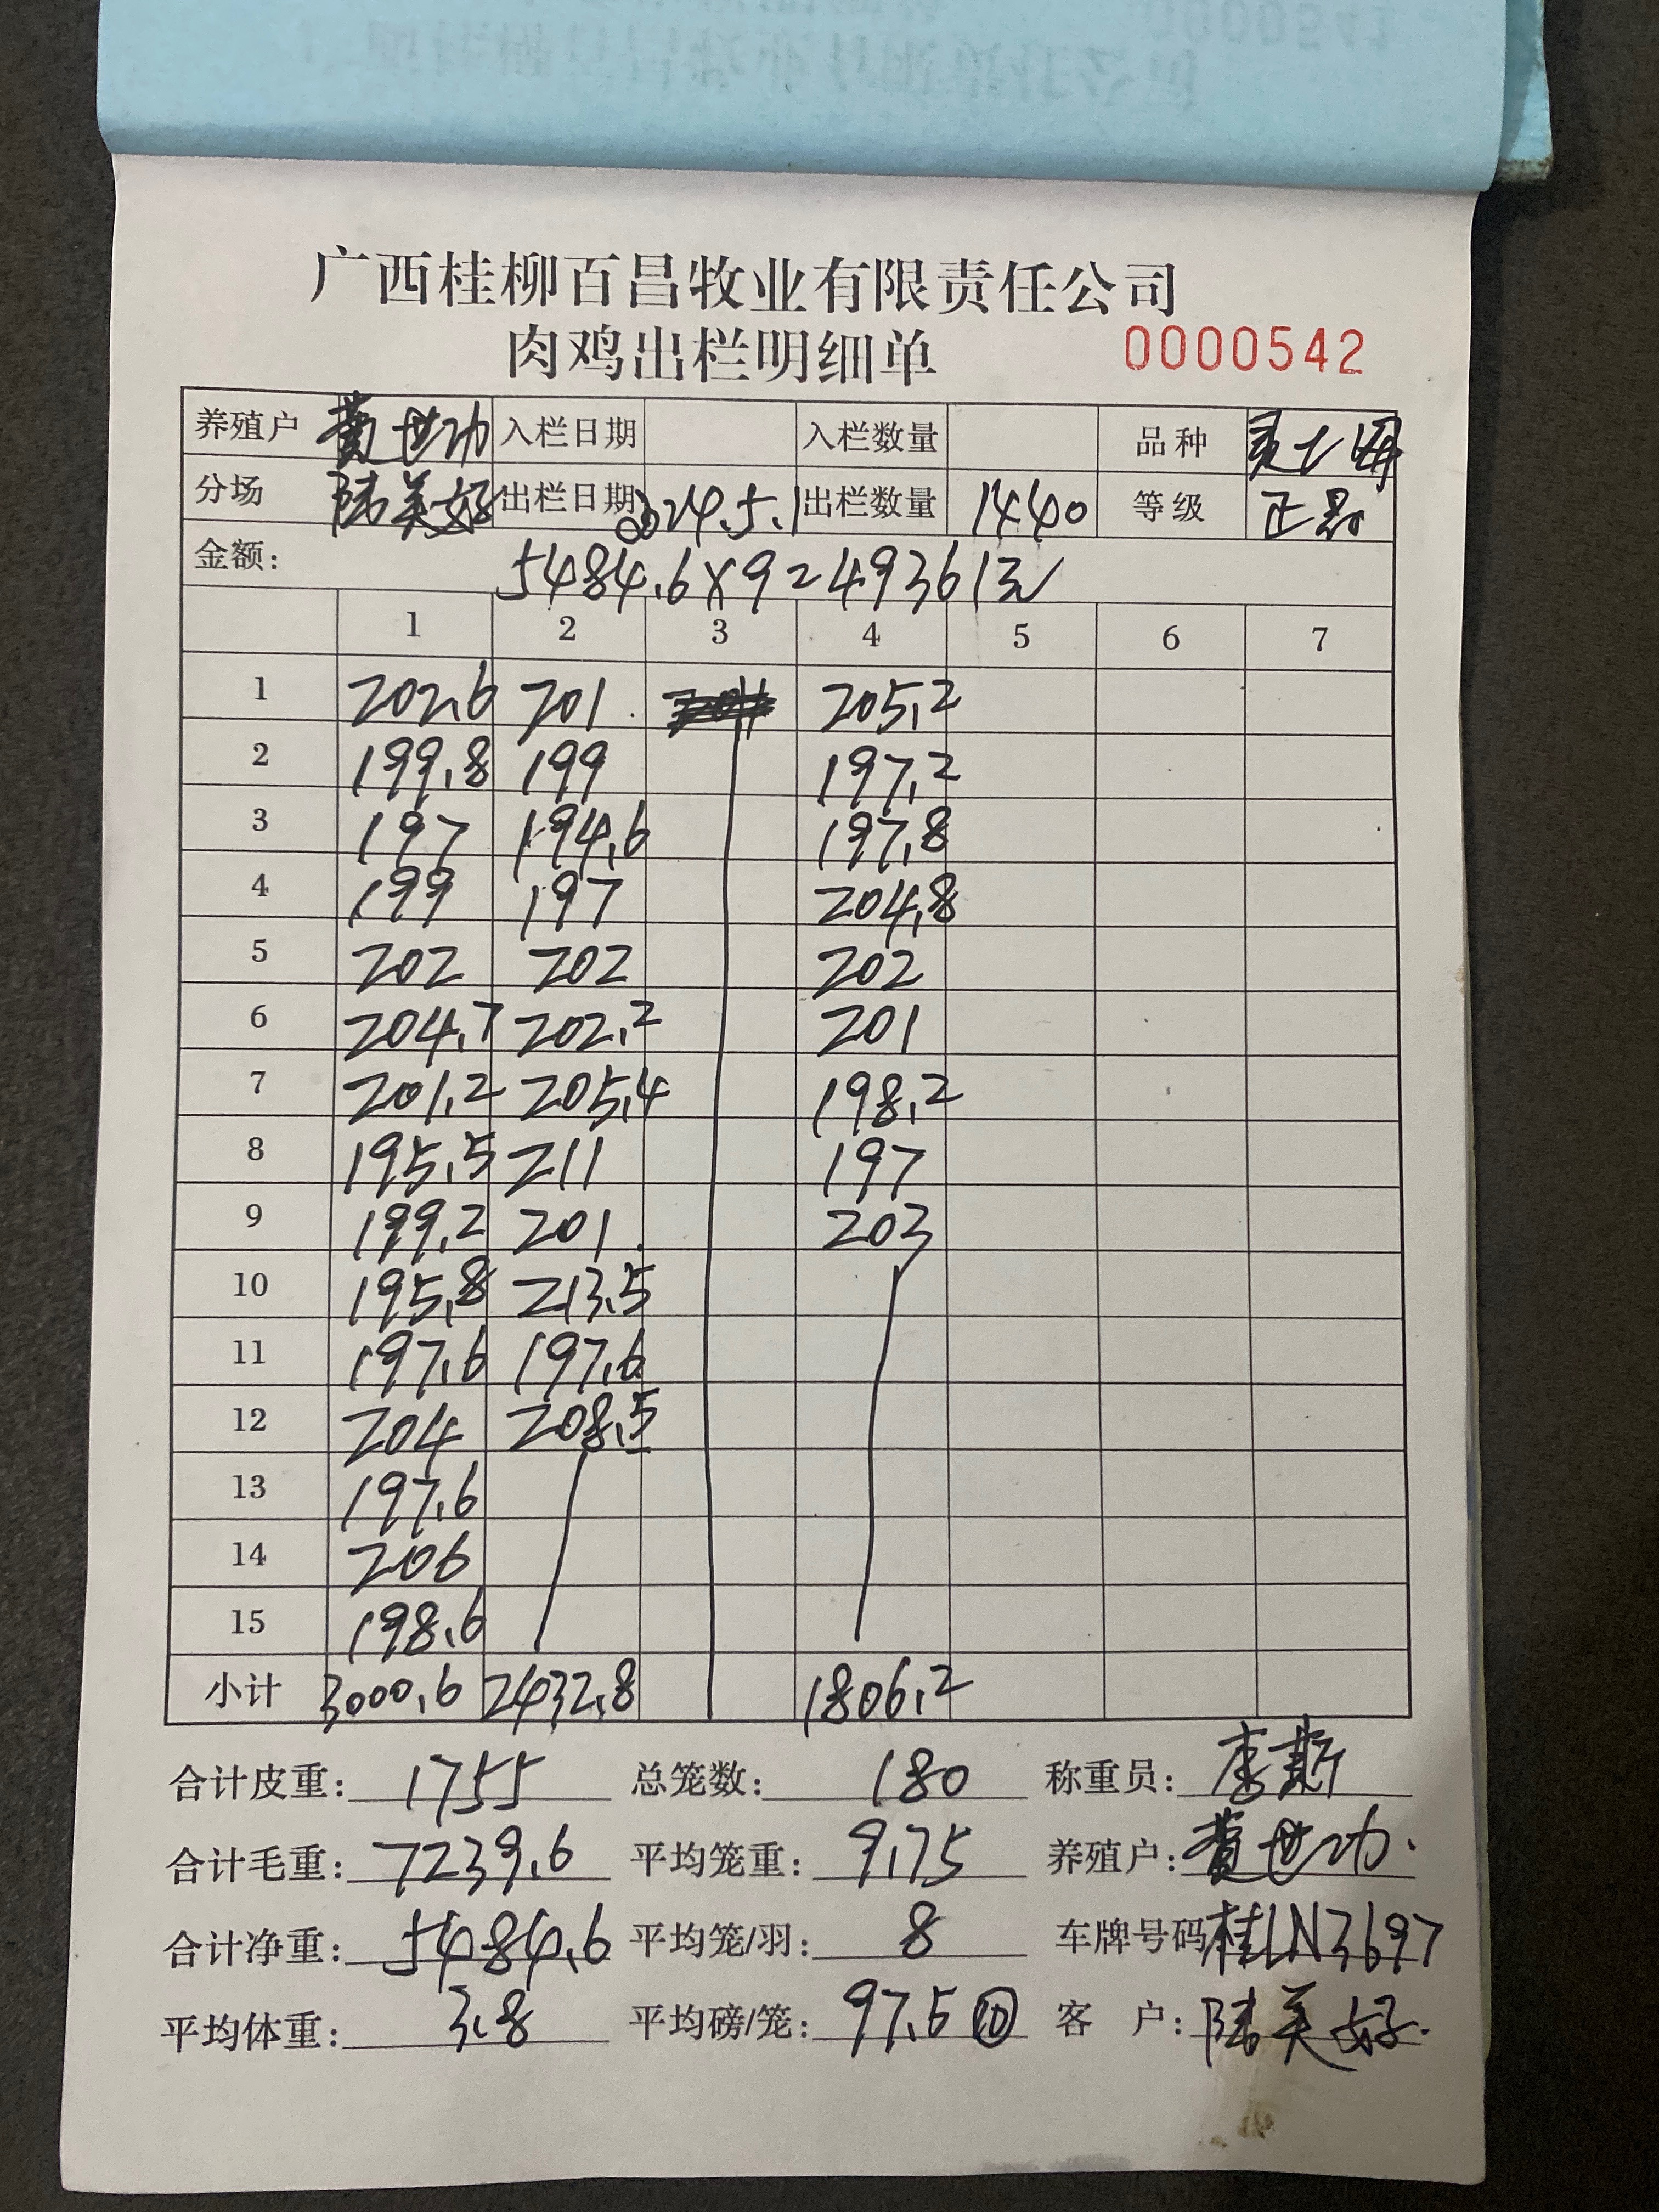 广西桂柳百昌牧业有限责任公司
肉鸡出栏明细单 0000542
养殖户 黄世功 入栏日期 入栏数量 品种
分场 陆美好 出栏日期 2024.5.1 出栏数量 1440 等级 正品
金额: 5484.6×9=49361元
1 2 3 4 5 6 7
1 202.6 201 205.2
2 199.8 199 197.2
3 197 194.6 197.8
4 199 197 204.8
5 202 202 202
6 204.7 202.2 201
7 201.2 205.4 198.2
8 195.5 211 197
9 199.2 201 203
10 195.8 213.5
11 197.6 197.6
12 204 208.5
13 197.6
14 206
15 198.6
小计 3000.6 2432.8 1806.2
合计皮重: 1755 总笼数: 180 称重员:
合计毛重: 7239.6 平均笼重: 9.75 养殖户: 黄世功.
合计净重: 5484.6 平均笼/羽: 8 车牌号码 桂LN3697
平均体重: 3.8 平均磅/笼: 97.5 ⑩ 客 户: 陆美好.